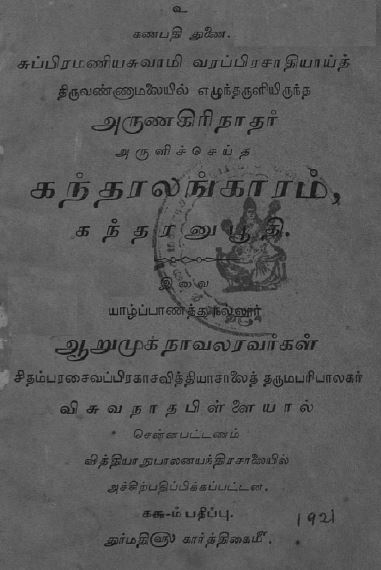 உ
கணபதி துணை.
சுப்பிரமணியசுவாமி வரப்பிரசாதியாய்த்
திருவண்ணாமலையில் எழுந்தருளியிருந்த
அருணகிரிநாதர்
அருளிச்செய்த
கந்தரலங்காரம்,
கந்தரனுபூதி.
இவை
யாழ்ப்பாணத்துநல்லூர்
ஆறுமுகநாவலரவர்கள்
சிதம்பரசைவப்பிரகாசவித்தியாசாலைத் தருமபரிபாலகர்
விசுவநாதபிள்ளையால்
சென்னபட்டணம்
வித்தியாநுபாலனயந்திரசாலையில்
அச்சிற்பதிப்பிக்கப்பட்டன.
௧௬-ம் பதிப்பு.
1921
துர்மதி௵ கார்த்திகை௴.